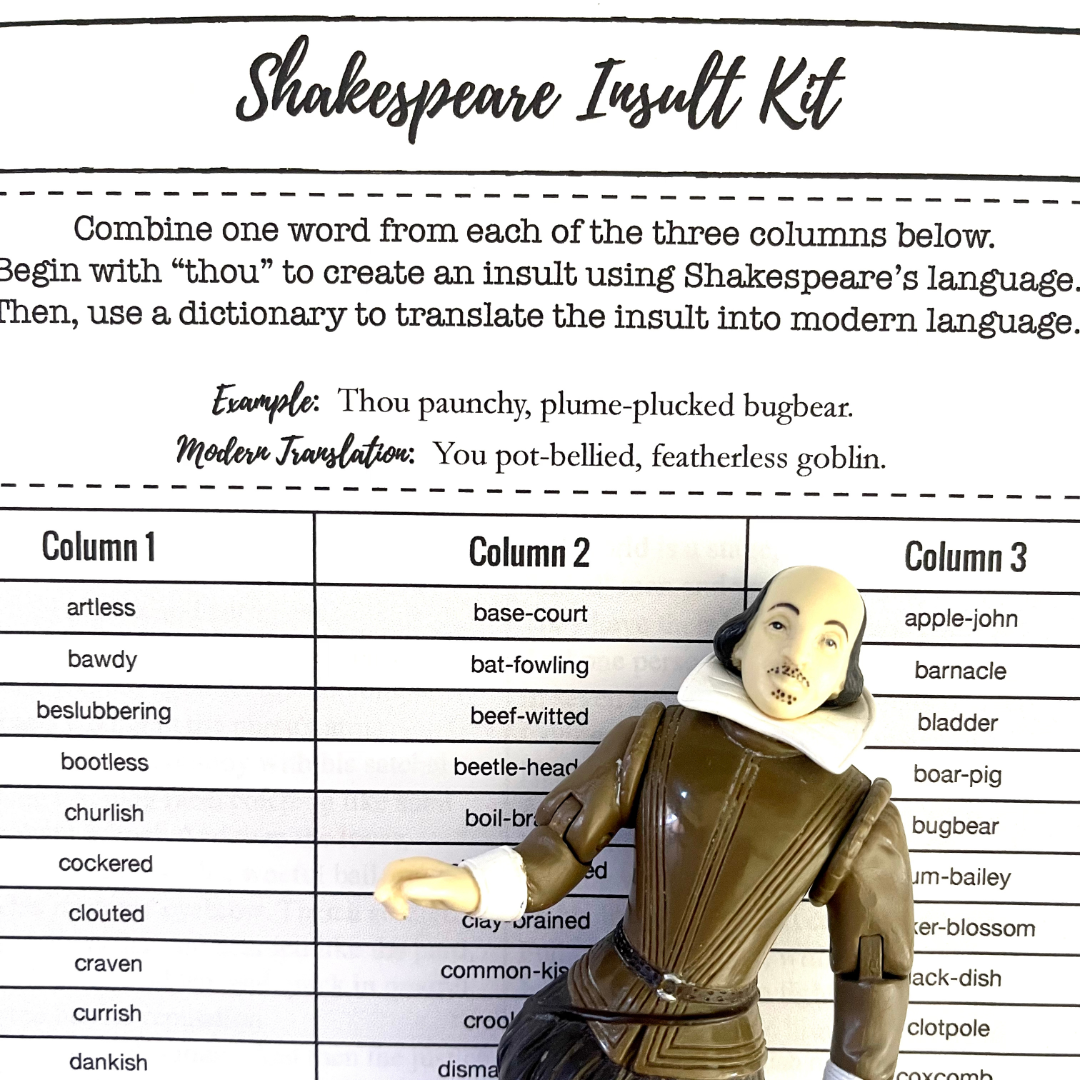 Shakespeare Insult Kit
Combine one word from each of the three columns below.
Begin with “thou” to create an insult using Shakespeare’s language.
Then, use a dictionary to translate the insult into modern language.
Example: Thou paunchy, plume-plucked bugbear.
Modern Translation: You pot-bellied, featherless goblin.
Column 1 Column 2 Column 3
artless base-court apple-john
bawdy bat-fowling barnacle
beslubbering beef-witted bladder
bootless beetle-head boar-pig
churlish bugbear
cockered
clouted clay-brained
craven
currish clotpole
dankish coxcomb